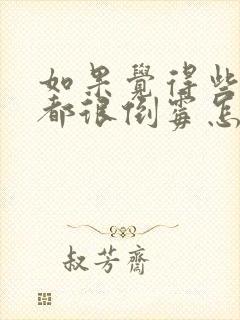 如果覺得些
都很倒霉怎
叔芳齋